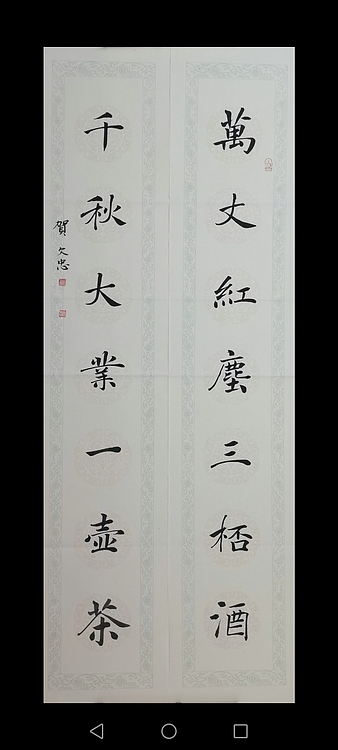 萬丈紅塵三桮酒
千秋大業一壺茶
賀文忠